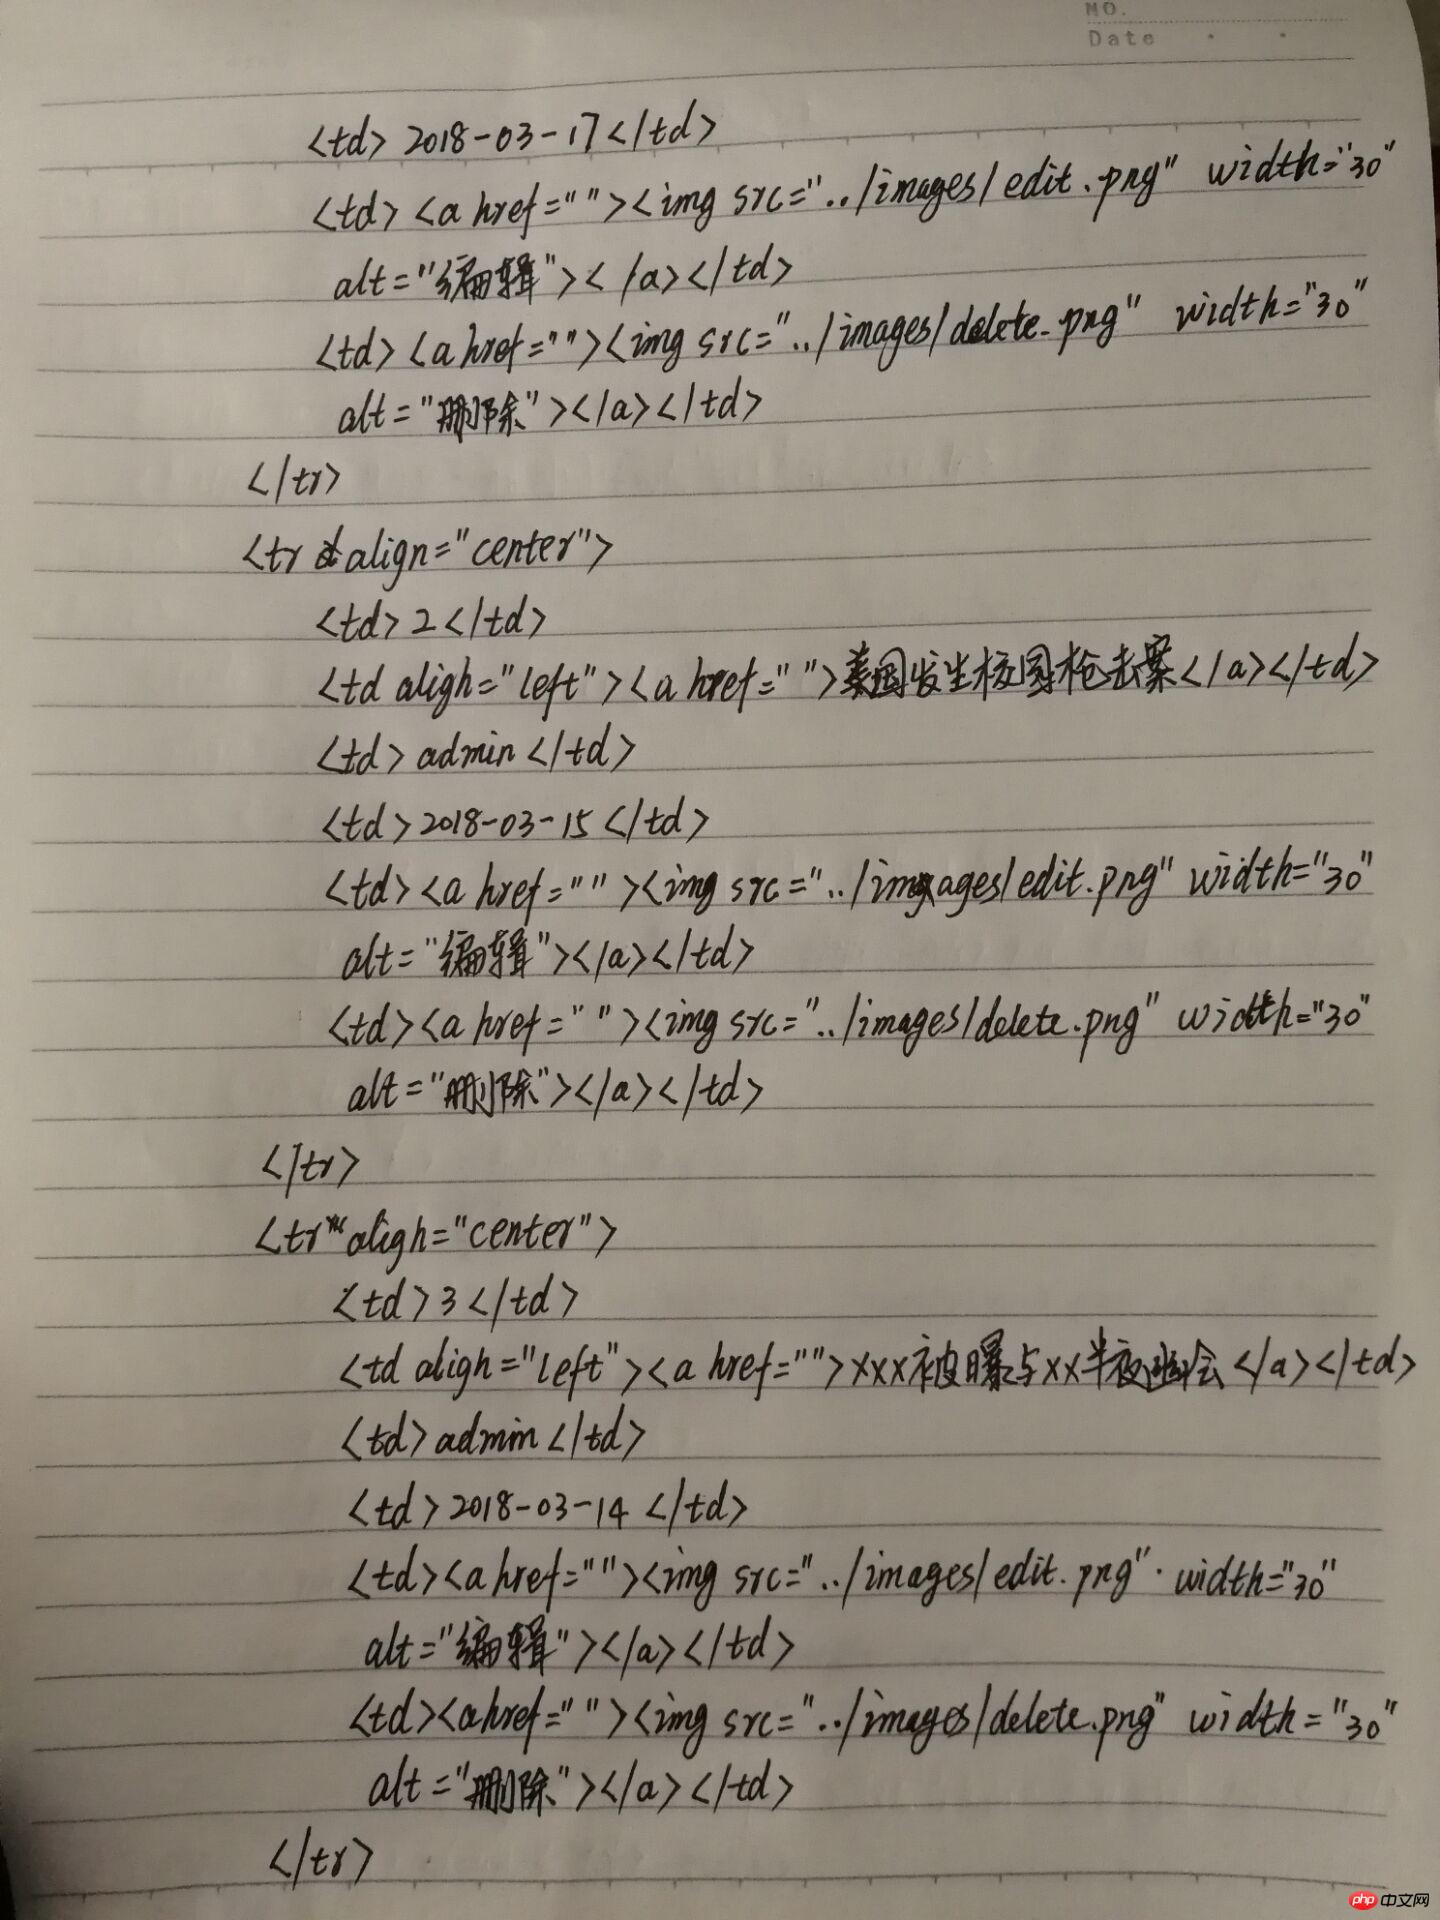 NO.
Date
<td>2018-03-17</td>
<td><a href=""><img src="../images/edit.png" width="30"
alt="编辑"></a></td>
<td><a href=""><img src="../images/delete.png" width="30"
alt="删除"></a></td>
</tr>
<tr align="center">
<td>2</td>
<td aligh="left"><a href="">美国发生校园枪击案</a></td>
<td>admin</td>
<td>2018-03-15</td>
<td><a href=""><img src="../images/edit.png" width="30"
alt="编辑"></a></td>
<td><a href=""><img src="../images/delete.png" width="30"
alt="删除"></a></td>
</tr>
<tr aligh="center">
<td>3</td>
<td aligh="left"><a href="">xxx被曝与xx半夜幽会</a></td>
<td>admin</td>
<td>2018-03-14</td>
<td><a href=""><img src="../images/edit.png" width="30"
alt="编辑"></a></td>
<td><a href=""><img src="../images/delete.png" width="30"
alt="删除"></a></td>
</tr>
php中文网